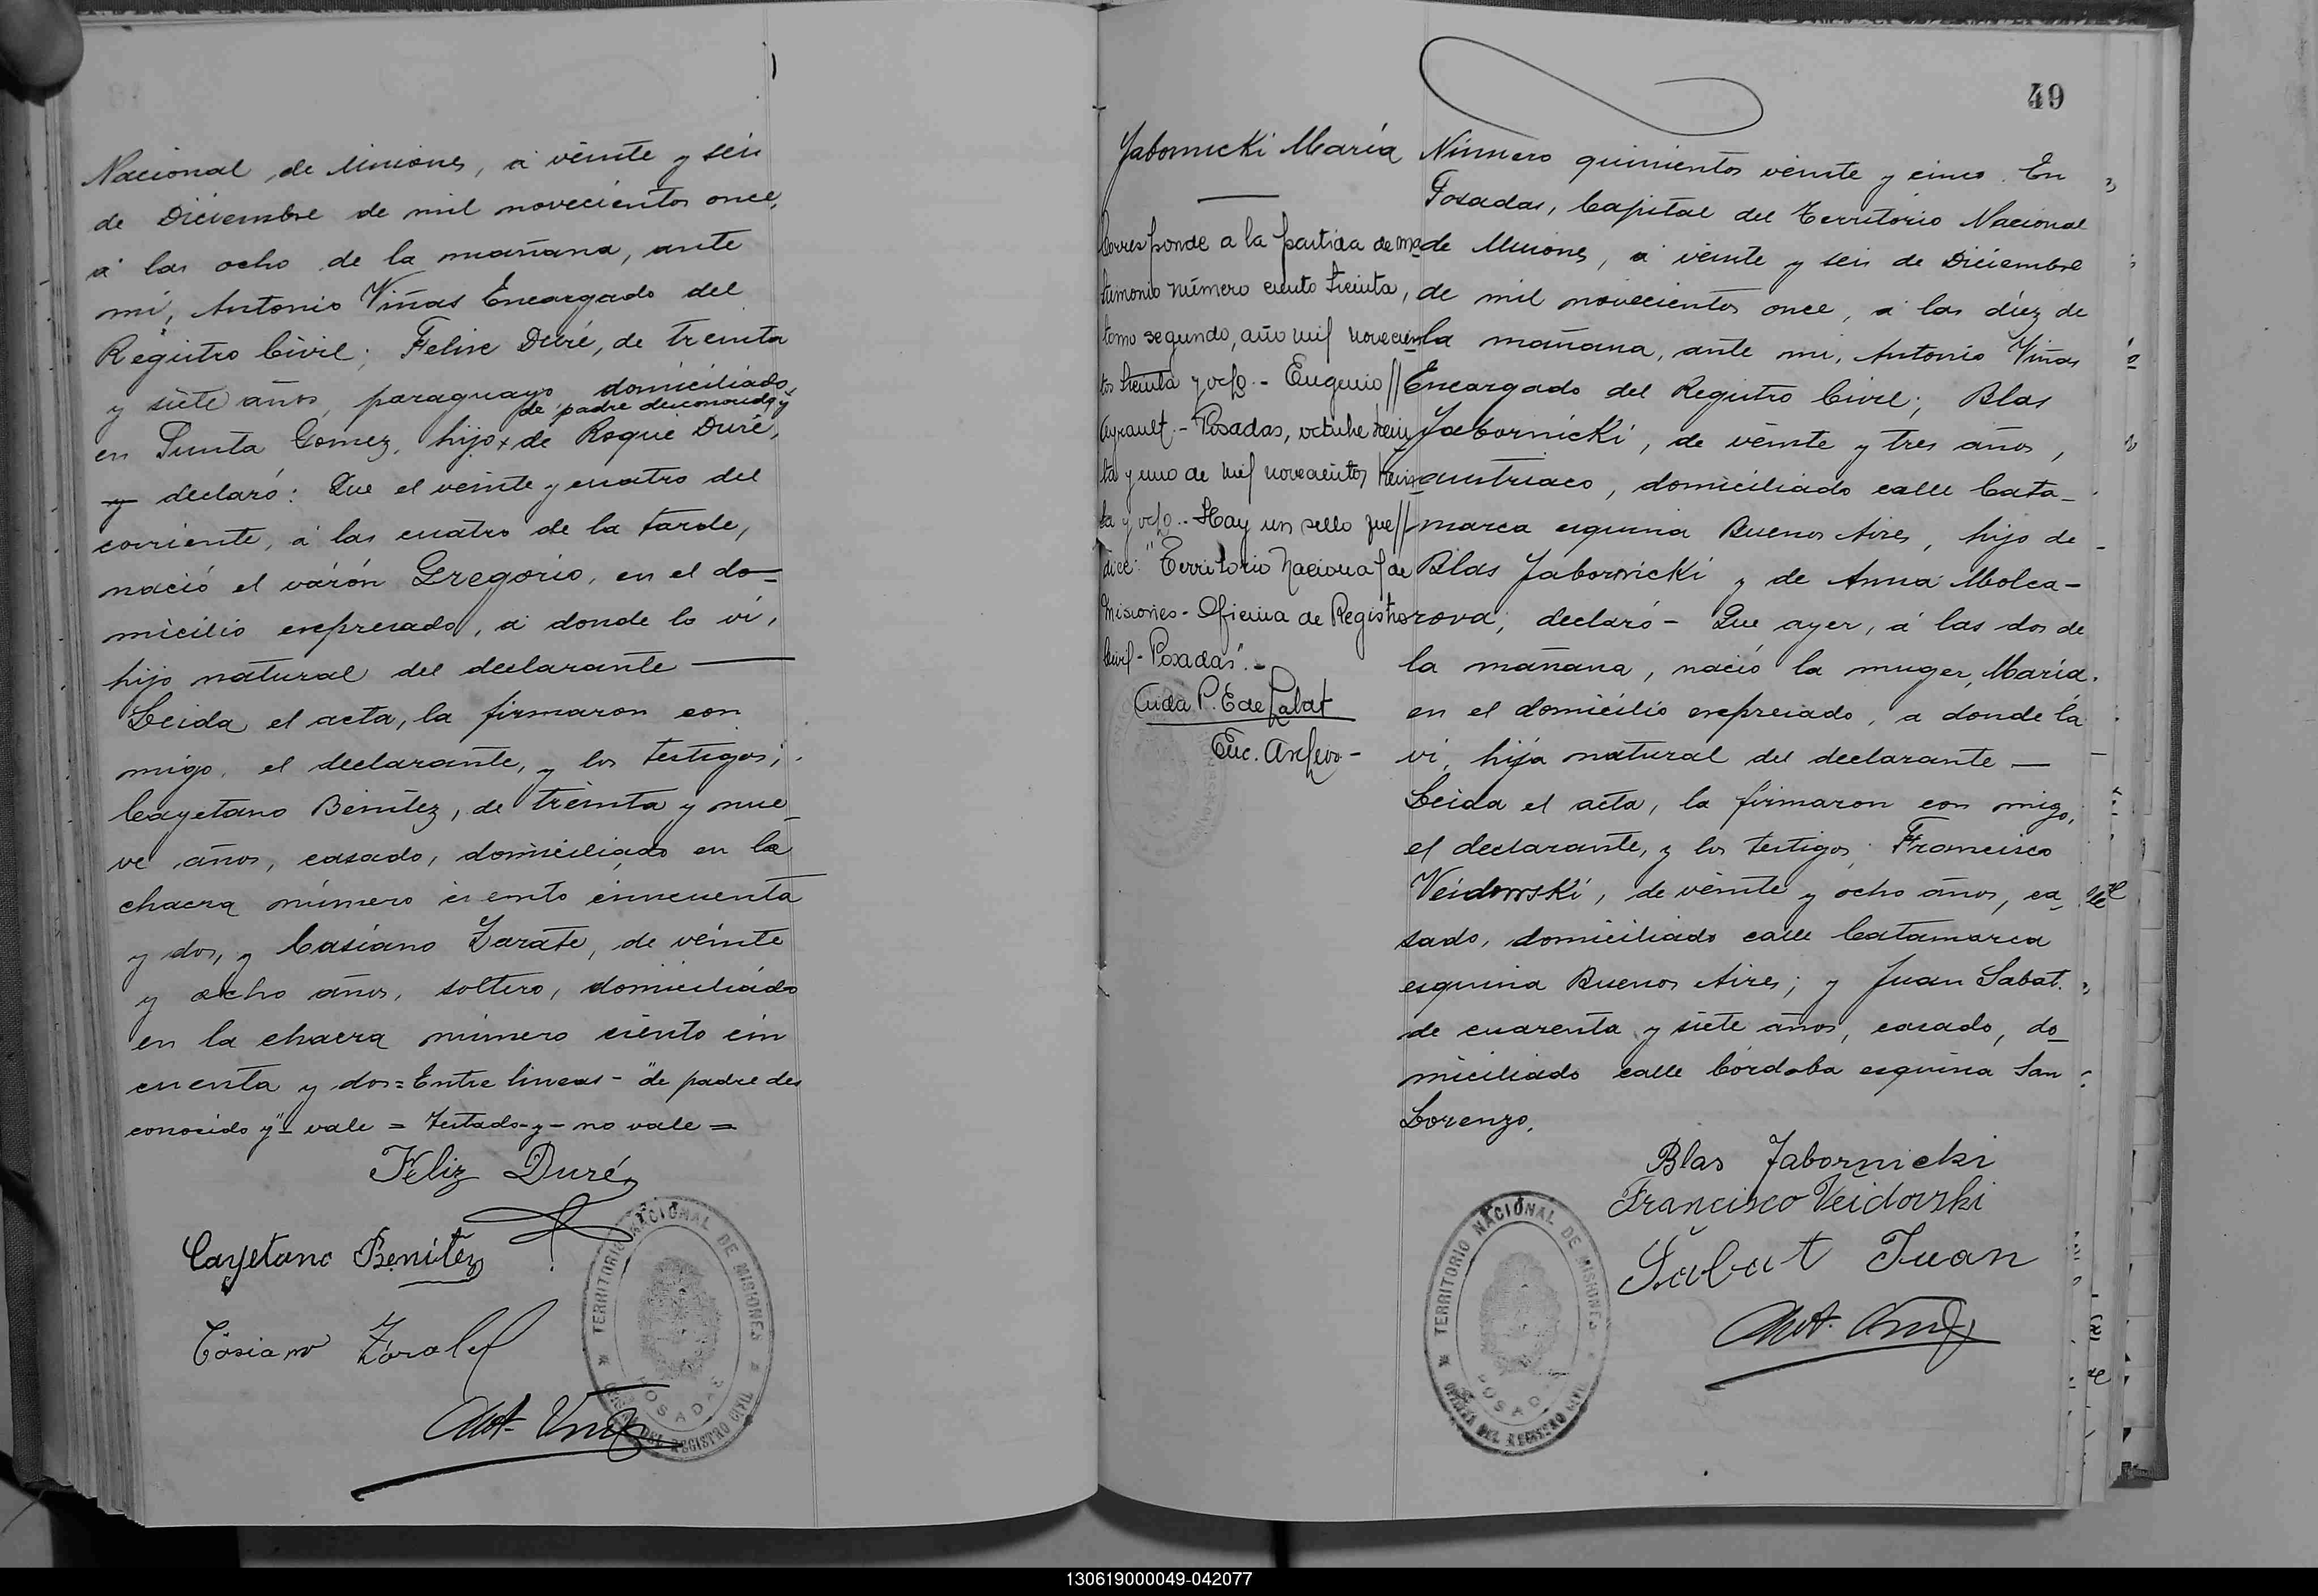 Nacional de Misiones, á veinte y seis
de Diciembre de mil novecientos once,
á las ocho de la mañana, ante
mi, Antonio Viñas Encargado del
Registro Civil; Felise Duré, de treinta
y siete años, paraguayo domiciliado,
de padre desconocido y
en Punta Gomez, hijo x de Roque Duré,
y declaró: Que el veinte y cuatro del
corriente, á las cuatro de la tarde,
nació el varón Gregorio, en el do-
micilio expresado, á donde lo vi,
hijo natural del declarante
Leida el acta, la firmaron con
migo, el declarante, y los testigos;
Cayetano Benitez, de treinta y nue-
ve años, casado, domiciliado en la
chacra número ciento cincuenta
y dos, y Casiano Zarate, de veinte
y ocho años, soltero, domiciliado
en la chacra número ciento cin
cuenta y dos = Entre lineas - "de padre des
conocido y" - vale = testado - y - no vale =
Feliz Duré
Cayetano Benitez
Casiano Zarate
Ant. Viñas
TERRITORIO NACIONAL DE MISIONES
POSADAS
OFICINA DEL REGISTRO CIVIL
49
Jabornicki María
Corresponde a la partida de ma-
trimonio número ciento treinta,
tomo segundo, año mil novecien-
tos treinta y ocho. - Eugenio //
Ayrault. - Posadas, octubre trein
ta y uno de mil novecientos trein-
ta y ocho. - Hay un sello que //
dice: "Territorio Nacional de
Misiones - Oficina de Registro
Civil - Posadas". -
P. E de Labat
Enc. Archivo -
Número quinientos veinte y cinco. En
Posadas, Capital del Territorio Nacional
de Misiones, á veinte y seis de Diciembre
de mil novecientos once, á las diez de
la mañana, ante mi, Antonio Viñas
Encargado del Registro Civil; Blas
Jabornicki, de veinte y tres años,
austriaco, domiciliado calle Cata-
marca esquina Buenos Aires, hijo de
Blas Jabornicki y de Anna Molca-
rova; declaró - Que ayer, á las dos de
la mañana, nació la muger, María.
en el domicilio expresado, a donde la
vi, hija natural del declarante —
Leida el acta, la firmaron con migo,
el declarante, y los testigos; Francisco
Veidowski, de veinte y ocho años, ca-
sado, domiciliado calle Catamarca
esquina Buenos Aires; y Juan Sabat.
de cuarenta y siete años, casado, do-
miciliado calle Córdoba esquina San
Lorenzo.
Blas Jabornicki
Francisco Veidovski
Sabat Juan
Ant. Viñas
TERRITORIO NACIONAL DE MISIONES
POSADAS
OFICINA DEL REGISTRO CIVIL
130619000049-042077